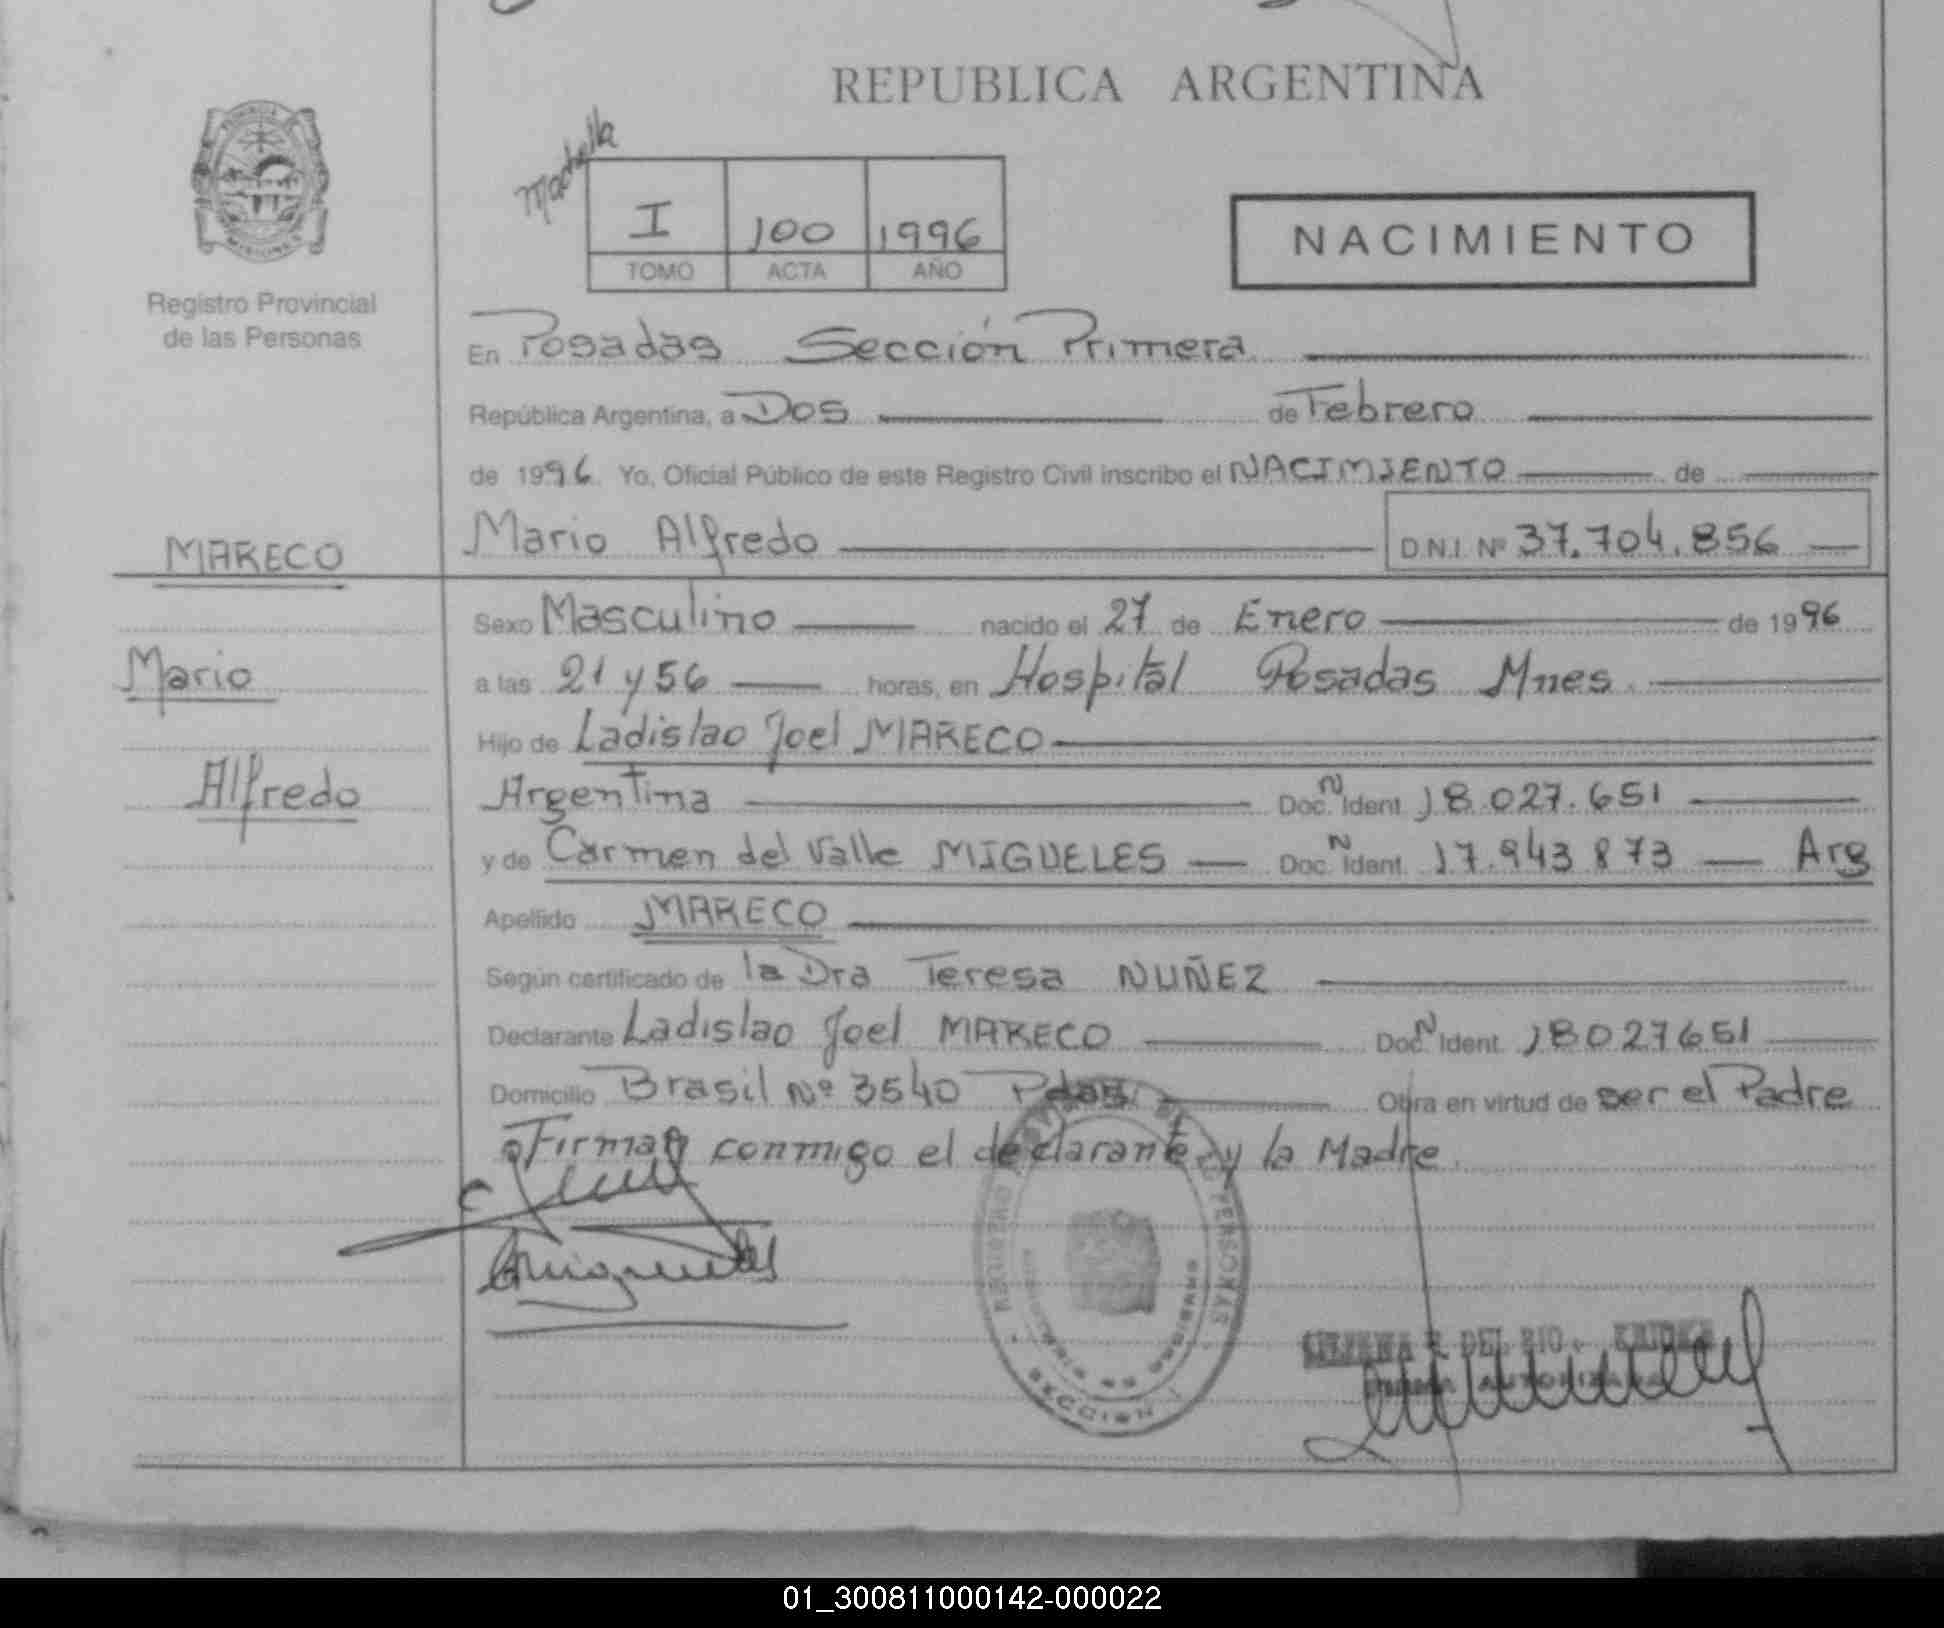 REPUBLICA ARGENTINA
I 100 1996
TOMO ACTA AÑO
NACIMIENTO
Registro Provincial
de las Personas
En Posadas Sección Primera
República Argentina, a Dos de Febrero
de 1996. Yo, Oficial Público de este Registro Civil inscribo el NACIMIENTO de
MARECO
Mario Alfredo D.N.I. Nº 37.704.856
Sexo Masculino nacido el 27 de Enero de 1996
Mario
a las 21 y 56 horas, en Hospital Posadas Mnes.
Hijo de Ladislao Joel MARECO
Alfredo
Argentina Doc. N Ident. 18.027.651
y de Carmen del Valle MIGUELES Doc. N Ident. 17.943.873 Arg
Apellido MARECO
Según certificado de la Dra Teresa NUÑEZ
Declarante Ladislao Joel MARECO Doc. N Ident. 18027651
Domicilio Brasil Nº 3540 Pdas Obra en virtud de ser el Padre
Firman conmigo el declarante y la Madre.
SECCION
DEL RIO
AUTORIZADA
01_300811000142-000022